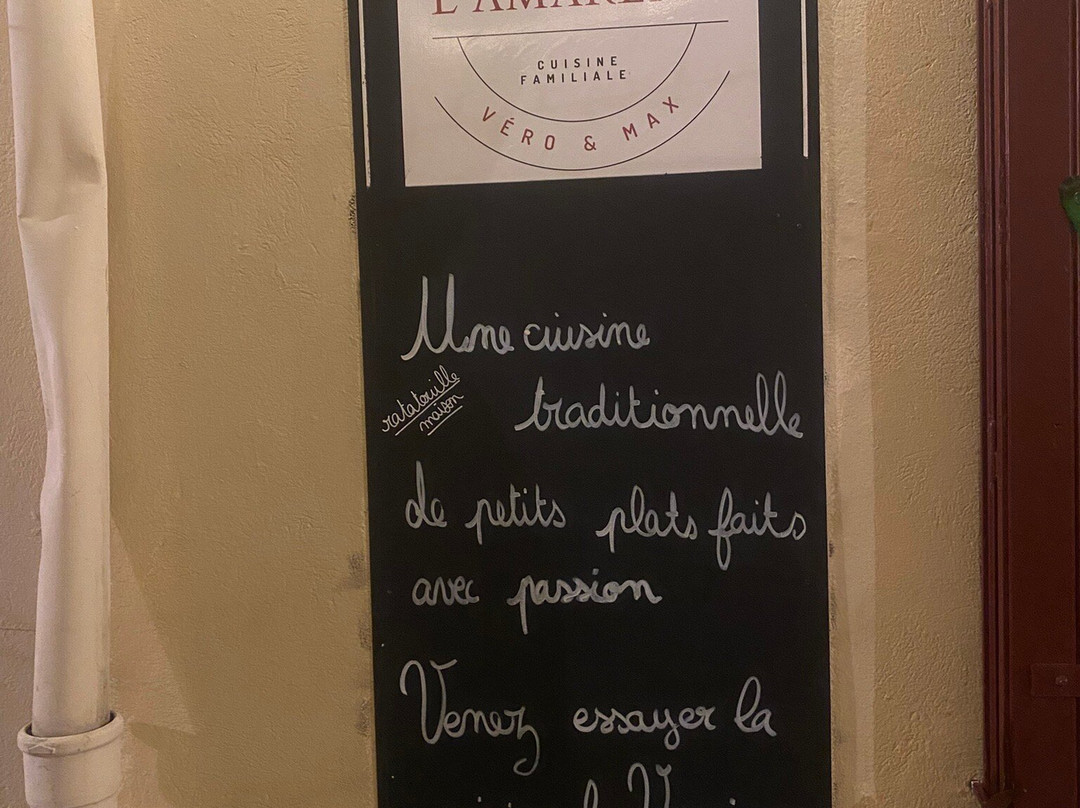 CUISINE
FAMILIALE
VÉRO & MAX
Une cuisine
ratatouille
maison
traditionnelle
de petits plats faits
avec passion
Venez essayer la